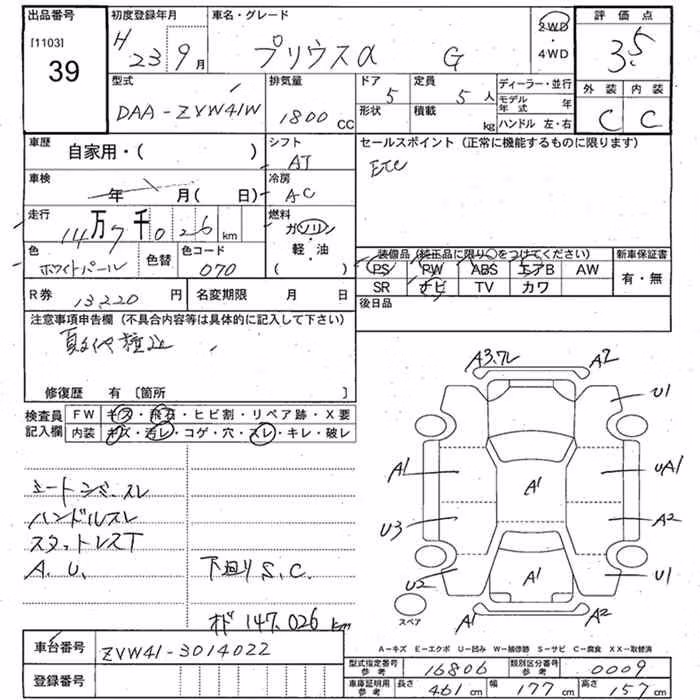 出品番号 初度登録年月 車名・グレード 評価点
[1103] 39 H23 9月 プリウスα G 2WD ・ 4WD 3.5
型式 排気量 ドア 定員 ディーラー・並行 外装 内装
DAA-ZVW41W 1800 CC 5 5人 モデル年式 年 C C
形状 積載 kg ハンドル 左・右
車歴 自家用・( ) シフト AT セールスポイント(正常に機能するものに限ります)
車検 年 月( 日) 冷房 AC ETC
走行 14万7千026km 燃料 ガソリン・軽・油 ( )
色 ホワイトパール 色替 色コード 070
装備品(純正品に限り○をつけてください) 新車保証書
PS RW ABS エアB AW 有・無
SR ナビ TV カワ
R券 13220円 名変期限 月 日 後日品
注意事項申告欄(不具合内容等は具体的に記入して下さい)
修復歴 有 [箇所 ]
検査員記入欄 FW キズ・飛石・ヒビ割・リペア跡・X要
内装 キズ・汚レ・コゲ・穴・スレ・キレ・破レ
A3.フレ A2
U1
A1 A1 UA1
U3 A2
U2 A1 U1
A1 A2
スペア
シートシミ.スレ
ハンドルスレ
スタットレスT
A.U. 下廻りS.C.
147.026km
A-キズ E-エクボ U-凹み W-補修跡 S-サビ C-腐食 XX-取替済
車台番号 ZVW41-3014022
登録番号
型式指定番号 参考 16806 類別区分番号 参考 0009
車庫証明用 参考 長さ 461cm 幅 177cm 高さ 157cm